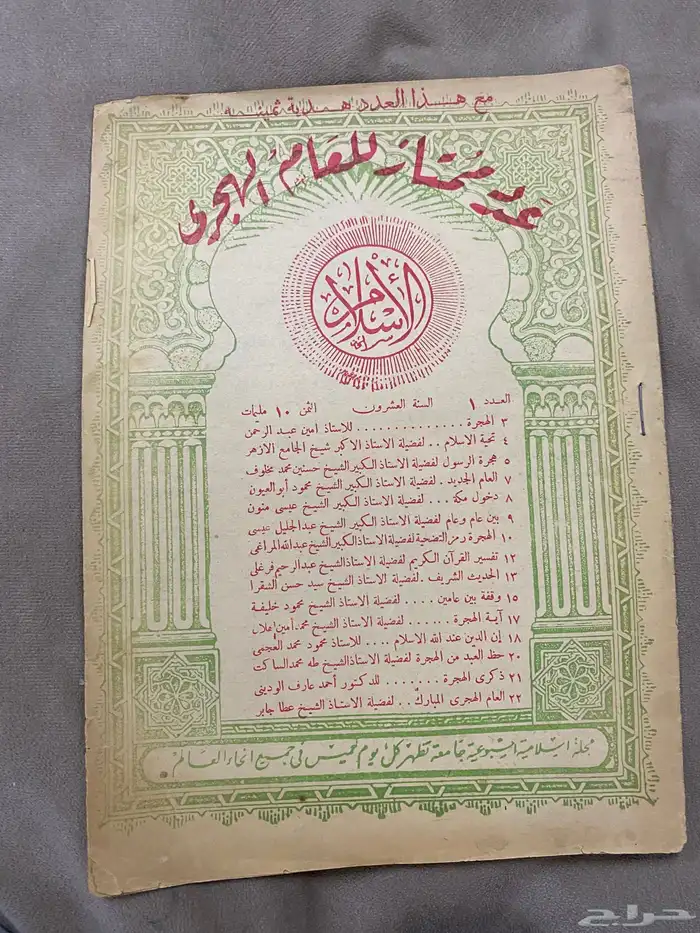 مع هذا العدد هدية ثمينة
عدد ممتاز للعام الهجرى
الإسلام
العدد ١ السنة العشرون الثمن ١٠ مليمات
٣ الهجرة . . . . . . . . . . . . . . للاستاذ امين عبد الرحمن
٤ تحية الاسلام . . لفضيلة الاستاذ الاكبر شيخ الجامع الازهر
٥ هجرة الرسول لفضيلة الاستاذ الكبير الشيخ حسنين محمد مخلوف
٧ العام الجديد . لفضيلة الاستاذ الكبير الشيخ محمود أبو العيون
٨ دخول مكة . . . لفضيلة الاستاذ الكبير الشيخ عيسى منون
٩ بين عام وعام لفضيلة الاستاذ الكبير الشيخ عبد الجليل عيسى
١٠ الهجرة رمز التضحية لفضيلة الاستاذ الكبير الشيخ عبد الله المراغى
١٢ تفسير القرآن الكريم لفضيلة الاستاذ الشيخ عبد الرحيم فرغلى
١٣ الحديث الشريف . لفضيلة الاستاذ الشيخ سيد حسن الشقرا
١٥ وقفة بين عامين . . . . لفضيلة الاستاذ الشيخ محمود خليفة
١٧ آية الهجرة . . . . . . لفضيلة الاستاذ الشيخ محمد امين هلال
١٨ إن الدين عند الله الاسلام . . . . للاستاذ محمود محمد العجمى
٢٠ حظ العبد من الهجرة لفضيلة الاستاذ الشيخ طه محمد الساكت
٢١ ذكرى الهجرة . . . . . . . . للدكتور أحمد عارف الودينى
٢٢ العام الهجرى المبارك . . لفضيلة الاستاذ الشيخ عطا جابر
مجلة اسلامية اسبوعية جامعة تظهر كل يوم خميس فى جميع انحاء العالم
حراج